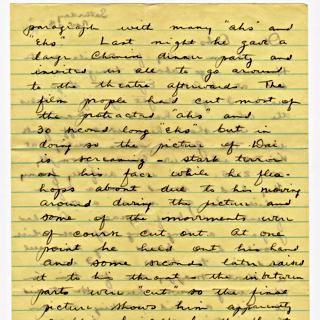 paragraph with many "ahs" and
"Ehs". Last night he gave a
large Chinese dinner party and
invited us all to go around
to the theatre afterwards. The
film people had cut most of
the protracted "ahs" and
30 second long "Ehs" but in
doing so the picture of Dai
is screaming - stark terror
on his face while he flea-
hops about due to his moving
around during the picture and
some of the movements were
of course cut out. At one
point he held out his hand
and some seconds later raised
it to his throat - the inbetween
parts were "cut" so the final
picture shows him apparently